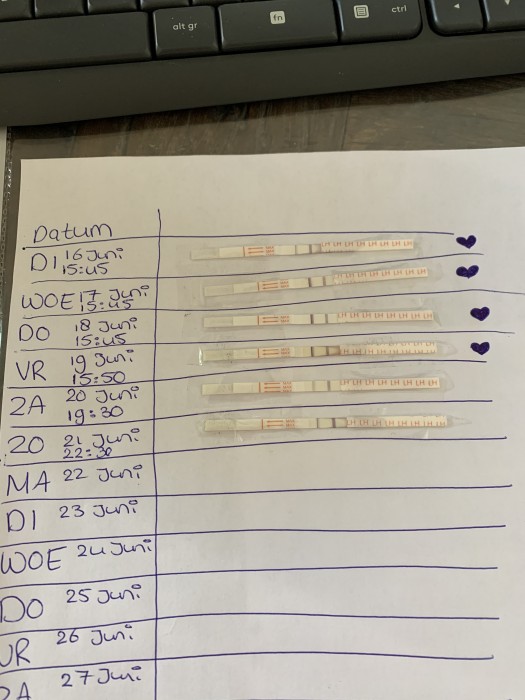 alt gr
fn
ctrl
Datum
DI 16 Juni
15:45
LH LH LH LH LH LH LH
WOE 17 Juni
15:45
LH LH LH LH LH LH LH
DO 18 Juni
15:45
LH LH LH LH LH LH LH
VR 19 Juni
15:50
LH LH LH LH LH LH LH
ZA 20 Juni
19:30
LH LH LH LH LH LH LH
ZO 21 Juni
22:30
LH LH LH LH LH LH LH
MA 22 Juni
DI 23 Juni
WOE 24 Juni
DO 25 Juni
VR 26 Juni
ZA 27 Juni